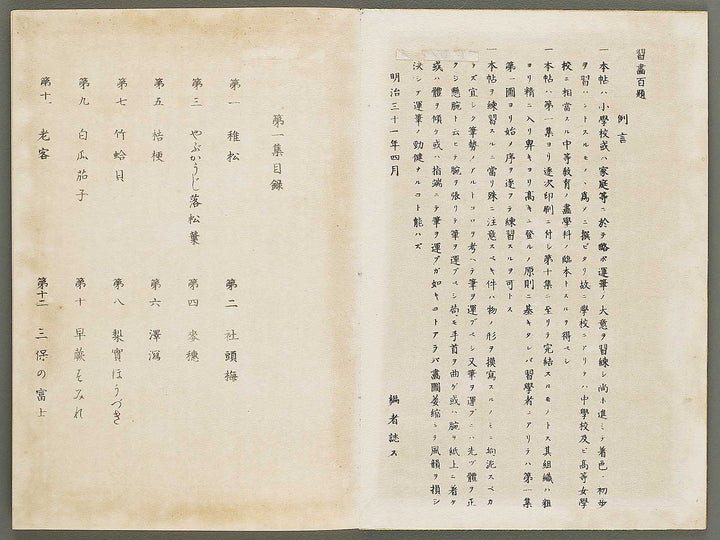 習畫百題
例言
一本帖ハ小學校或ハ家庭等ニ於テ略ボ運筆ノ大意ヲ習練シ尚ホ進ミテ着色ノ初歩
ヲ習ハントスルモノヽ爲メニ撰ビタリ故ニ學校ニアリテハ中學校及ビ高等女學
校ニ相當スル中等教育ノ畵學科ノ臨本トスルヲ得ベシ
一本帖ハ第一集ヨリ逐次印刷ニ付シ第十集ニ至リテ完結スルモノトス其組織ハ粗
ヨリ精ニ入リ卑キヨリ高キニ登ルノ原則ニ基キタレバ習學者ニアリテハ第一集
第一圖ヨリ始メ序ヲ逐フテ練習スルヲ可トス
一本帖ヲ練習スルニ當リ殊ニ注意スベキ件ハ物ノ形ヲ摸寫スルノミニ拘泥スベカ
ラズ宜シク筆勢ノアルトコロヲ考ヘテ筆ヲ運ブベシ又筆ヲ運ブニハ先ヅ體ヲ正
クシ懸腕ト云ヒテ腕ヲ張リテ筆ヲ運ブベシ苟モ手首ヲ曲ゲ或ハ腕ヲ紙上ニ着ケ
或ハ體ヲ傾ケ或ハ指端ニテ筆ヲ運ブガ如キコトアラバ畵圖萎縮シテ風韻ヲ損シ
決シテ運筆ノ勁健ナルコト能ハズ
明治三十一年四月
編者誌ス
第一集目録
第一 稚松
第二 社頭梅
第三 やぶかうじ落松葉
第四 麥穗
第五 桔梗
第六 澤瀉
第七 竹蛤貝
第八 梨實ほうづき
第九 白瓜茄子
第十 早蕨すみれ
第十一 老客
第十二 三保の富士